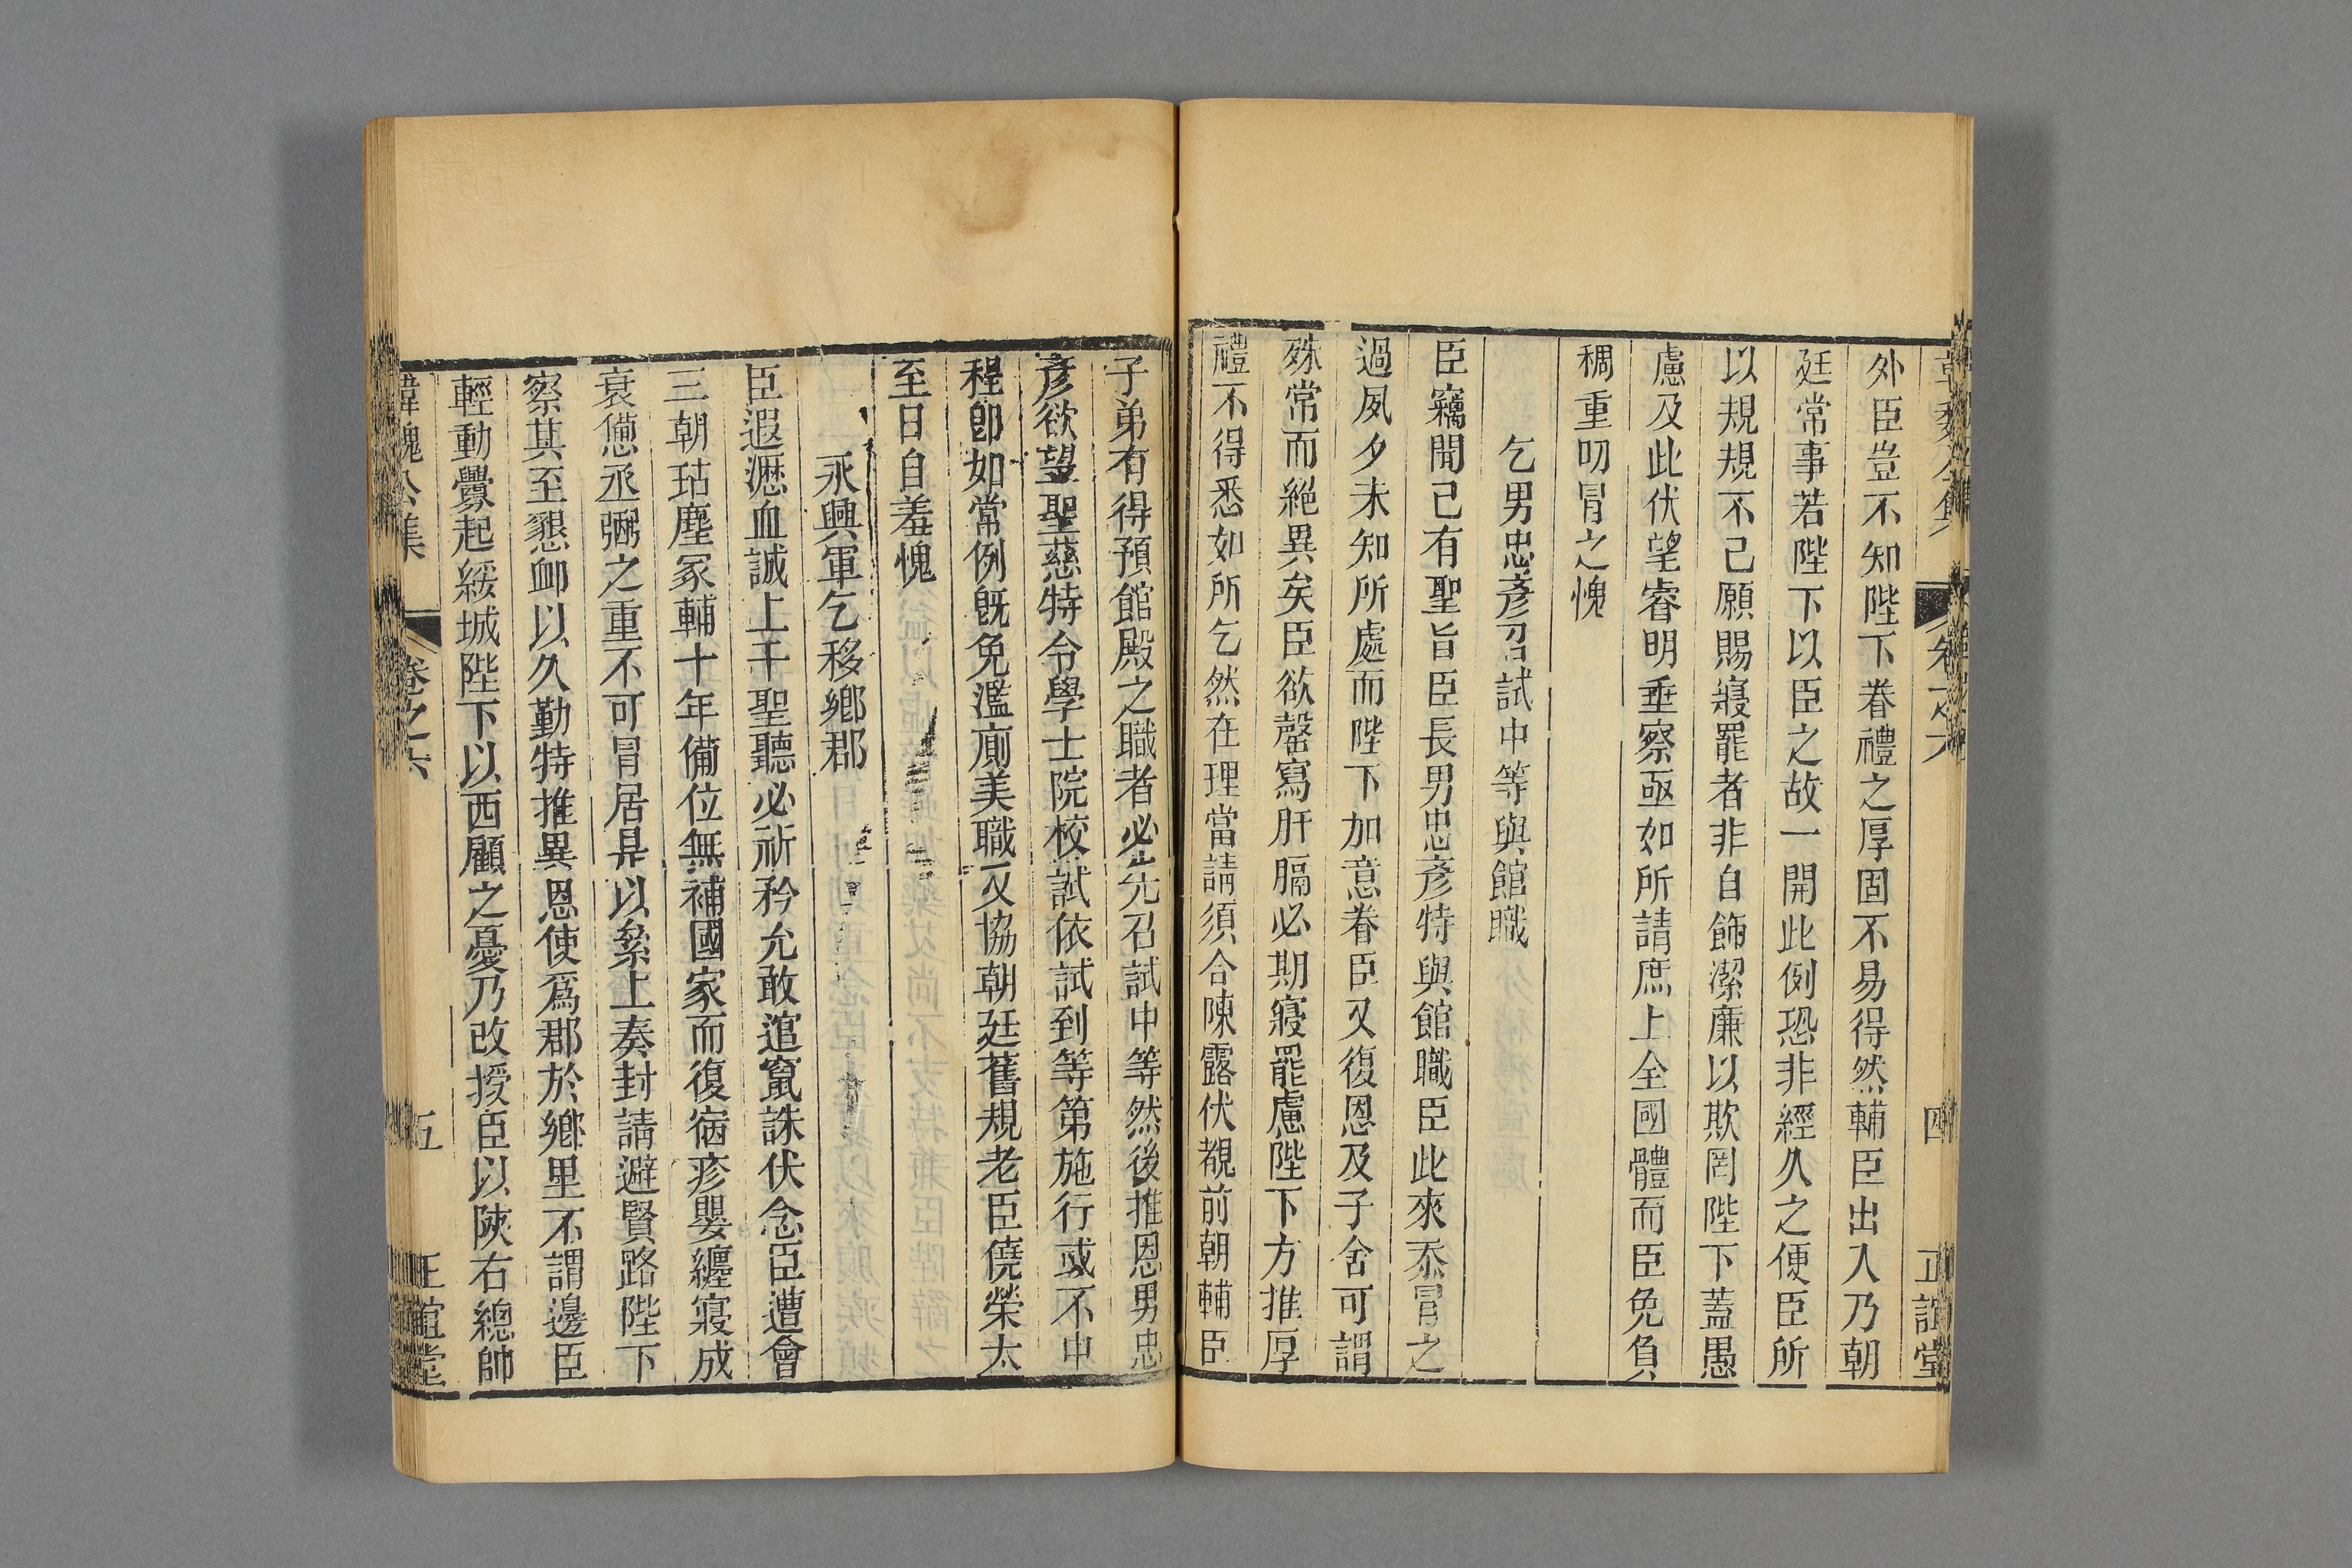 外臣豈不知陛下眷禮之厚固不易得然輔臣出入乃朝
廷常事若陛下以臣之故一開此例恐非經久之便臣所
以規規不已願賜寢罷者非自飾潔廉以欺罔陛下蓋愚
慮及此伏望睿明垂察亟如所請庶上全國體而臣免負
稠重叨冒之愧
乞男忠彥召試中等與館職
臣竊聞已有聖旨臣長男忠彥特與館職臣此來忝冒之
過夙夕未知所處而陛下加意眷臣又復恩及子舍可謂
殊常而絕異矣臣欲罄寫肝膈必期寢罷慮陛下方推厚
禮不得悉如所乞然在理當請須合陳露伏覩前朝輔臣
子弟有得預館殿之職者必先召試中等然後推恩男忠
彥欲望聖慈特令學士院校試依試到等第施行或不中
程卽如常例旣免濫廁美職又協朝廷舊規老臣僥榮太
至日自羞愧
永興軍乞移鄉郡
臣遐瀝血誠上干聖聽必祈矜允敢逭竄誅伏念臣遭會
三朝玷塵冢輔十年備位無補國家而復宿疹嬰纏寖成
衰憊丞弼之重不可冒居是以絫上奏封請避賢路陛下
察其至懇卹以久勤特推異恩使爲郡於鄉里不謂邊臣
輕動釁起綏城陛下以西顧之憂乃改授臣以陝右總帥
韓魏公集 卷之六 五 正誼堂